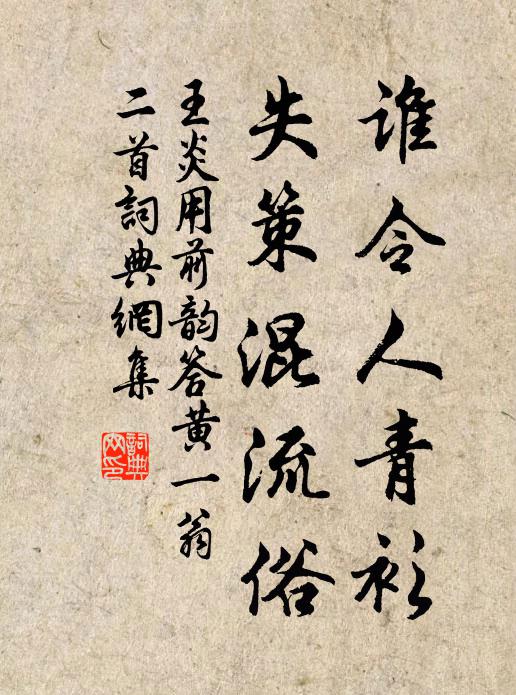 谁令人青衫
失策混流俗
王炎用前韵答黄一翁
二首詞典網集
詞典网印